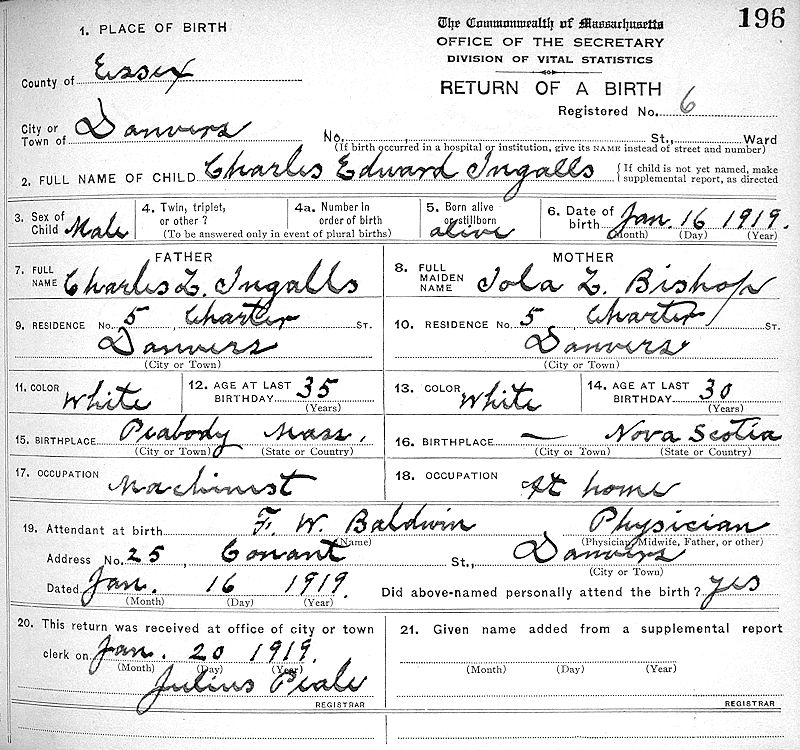 196
1. PLACE OF BIRTH
The Commonwealth of Massachusetts
OFFICE OF THE SECRETARY
DIVISION OF VITAL STATISTICS
RETURN OF A BIRTH
County of Essex
Registered No. 6
City or Town of Danvers No. St., Ward
(If birth occurred in a hospital or institution, give its NAME instead of street and number)
2. FULL NAME OF CHILD Charles Edward Ingalls {If child is not yet named, make supplemental report, as directed
3. Sex of Child Male
4. Twin, triplet, or other ?
4a. Number in order of birth
(To be answered only in event of plural births)
5. Born alive or stillborn alive
6. Date of birth Jan. 16 1919.
(Month) (Day) (Year)
FATHER
MOTHER
7. FULL NAME Charles L. Ingalls
8. FULL MAIDEN NAME Iola L. Bishop
9. RESIDENCE No. 5, Charter ST.
Danvers
(City or Town)
10. RESIDENCE No. 5, Charter ST.
Danvers
(City or Town)
11. COLOR White
12. AGE AT LAST BIRTHDAY 35
(Years)
13. COLOR White
14. AGE AT LAST BIRTHDAY 30
(Years)
15. BIRTHPLACE Peabody Mass.
(City or Town) (State or Country)
16. BIRTHPLACE — Nova Scotia
(City or Town) (State or Country)
17. OCCUPATION Machinist
18. OCCUPATION At home
19. Attendant at birth F. W. Baldwin Physician
(Name) (Physician, Midwife, Father, or other)
Address No. 25, Conant St., Danvers
(City or Town)
Dated Jan. 16 1919. Did above-named personally attend the birth? yes
(Month) (Day) (Year)
20. This return was received at office of city or town
clerk on Jan. 20 1919.
(Month) (Day) (Year)
Julius Peale
REGISTRAR
21. Given name added from a supplemental report
(Month) (Day) (Year)
REGISTRAR